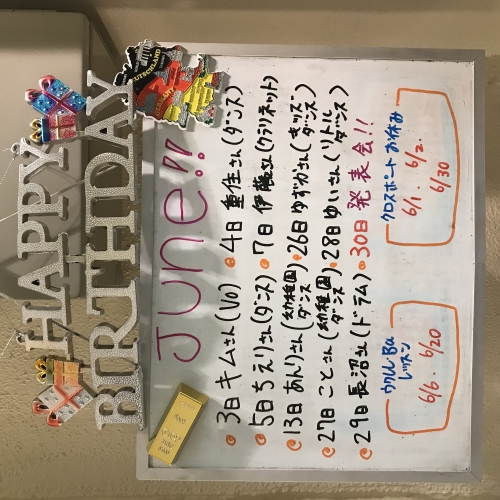 HAPPY
BIRTHDAY
DEUTSCHLAND
JUNE!!
3日 キムさん(Vo) 4日 重住さん(ダンス)
5日 ちえりさん(ダンス) 7日 伊藤さん(クラリネット)
13日 あんりさん(幼稚園ダンス) 26日 ゆずかさん(キッズダンス)
27日 ことさん(幼稚園ダンス) 28日 ゆいさん(リトルダンス)
29日 長沼さん(ドラム) 30日 発表会!!
ウクレレBa
レッスン
6/6 6/20
クロスポイント お休み
6/1. 6/2.
6/30